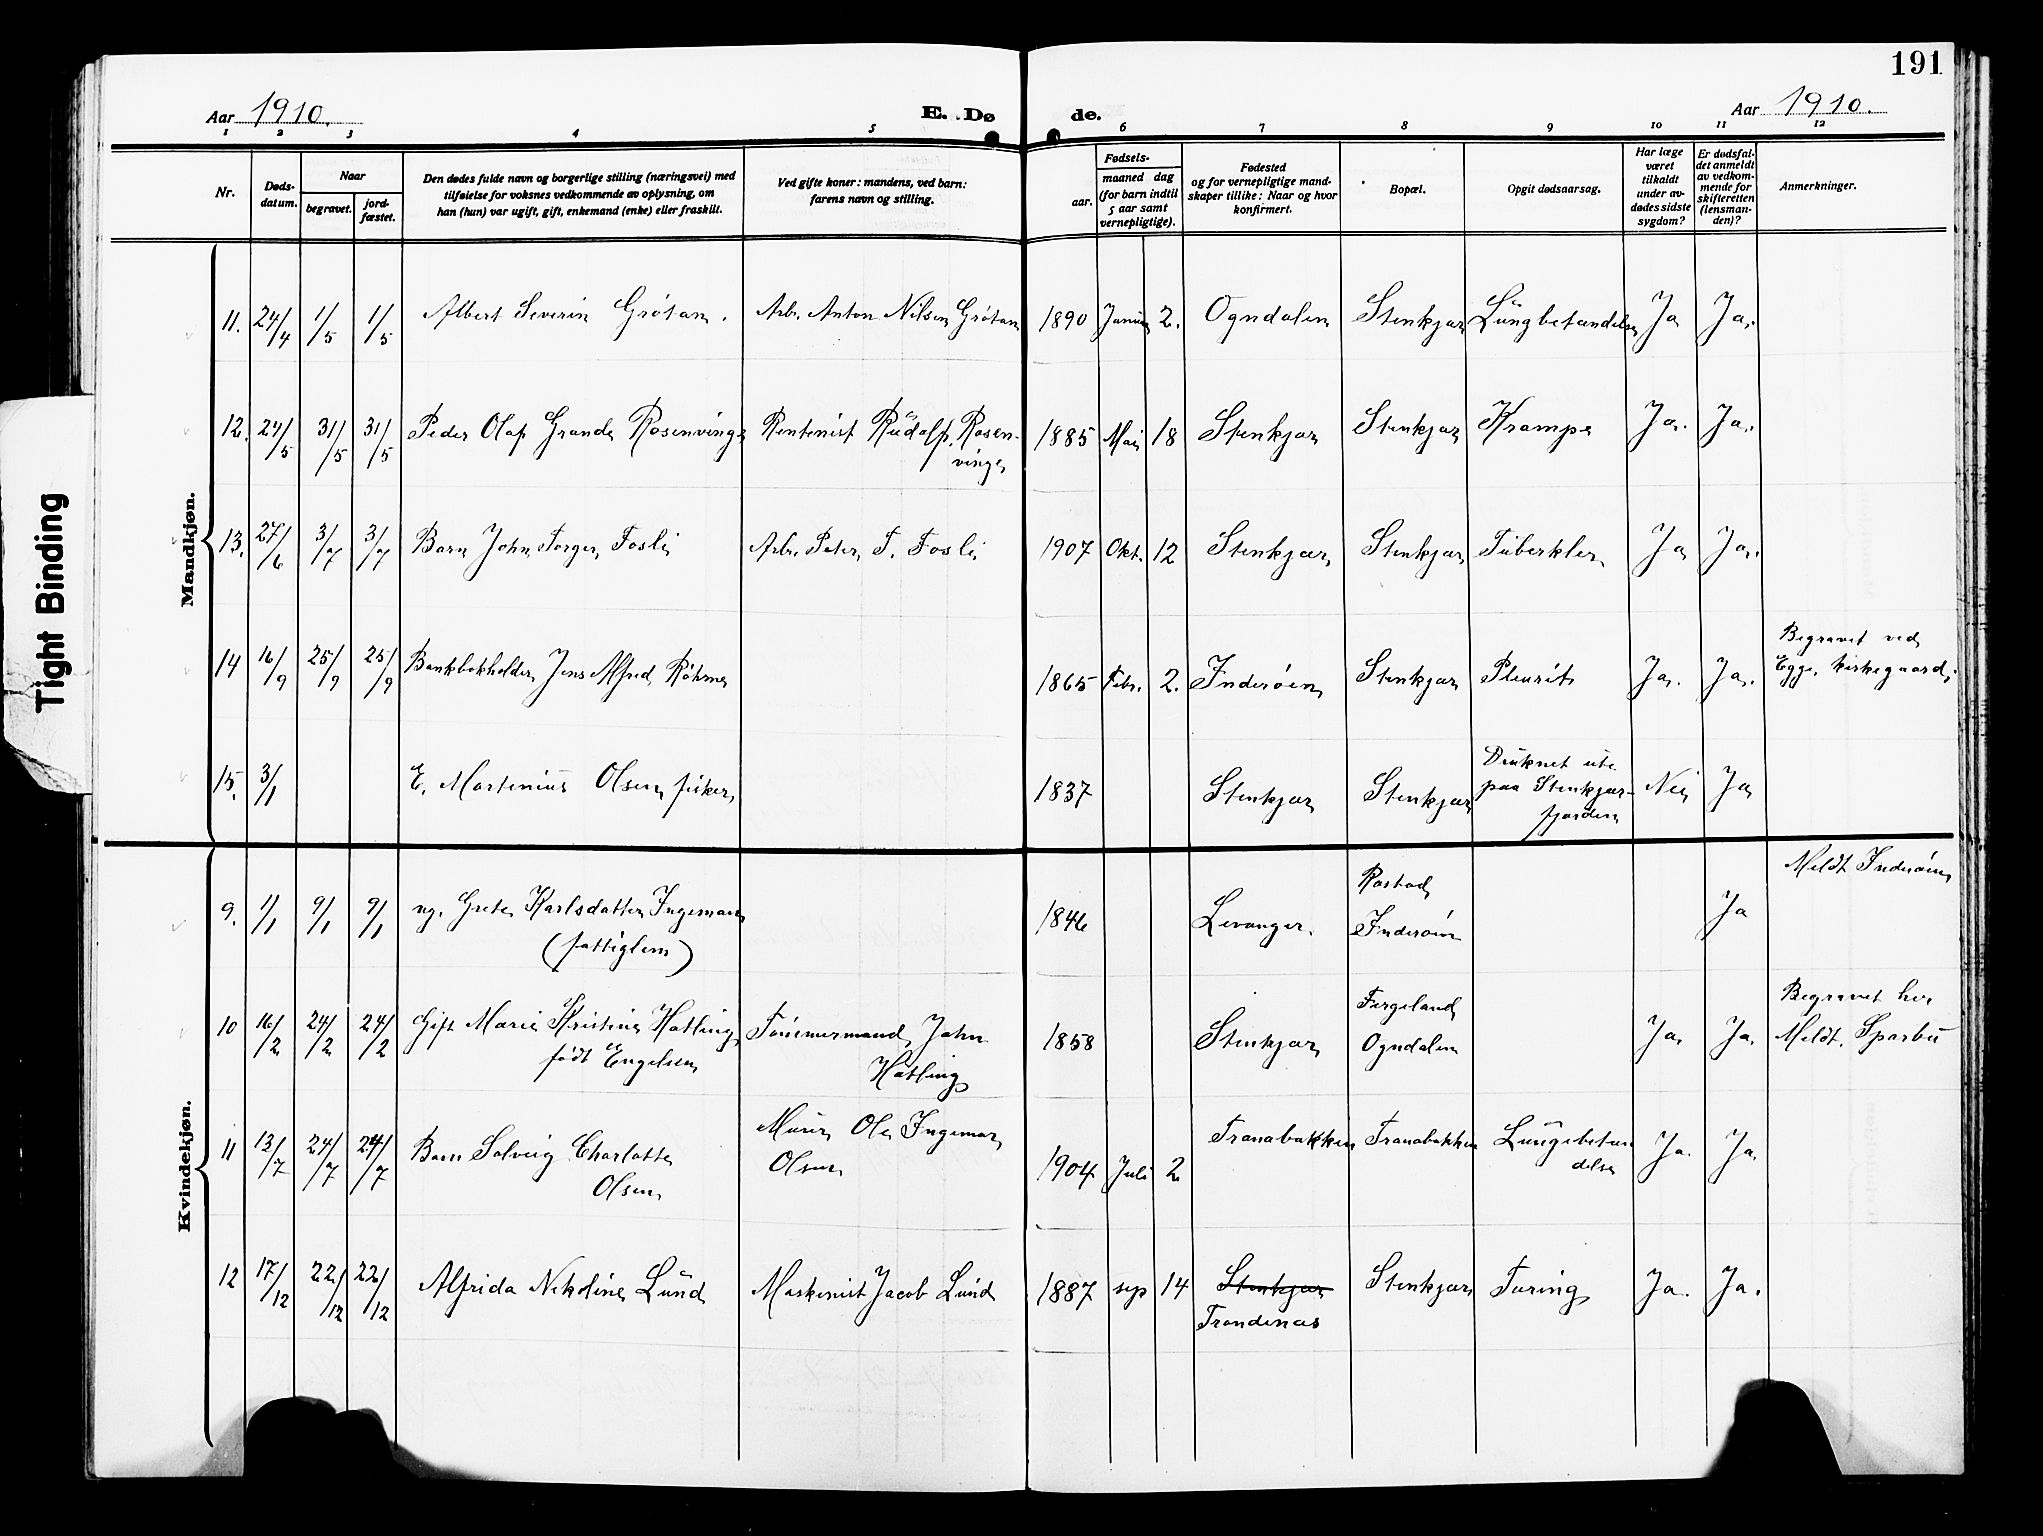 191
Aar 1910.
E. Dø
de.
Aar 1910.
1 2 3 4 5 6 7 8 9 10 11 12
Nr.
Døds-
datum.
Naar
begravet.
jord-
fæstet.
Den dødes fulde navn og borgerlige stilling (næringsvei) med
tilføielse for voksnes vedkommende av oplysning, om
han (hun) var ugift, gift, enkemand (enke) eller fraskilt.
Ved gifte koner: mandens, ved barn:
farens navn og stilling.
aar.
Fødsels-
maaned dag
(for barn indtil
5 aar samt
vernepligtige).
Fødested
og for vernepligtige mand-
skaper tillike: Naar og hvor
konfirmert.
Bopæl.
Opgit dødsaarsag.
Har læge
været
tilkaldt
under av-
dødes sidste
sygdom?
Er dødsfal-
det anmeldt
av vedkom-
mende for
skifteretten
(lensman-
den)?
Anmerkninger.
Mandkjøn.
11. 24/4 1/5 1/5 Albert Severin Grötan. Arb. Anton Nilsen Grötan 1890 Januar 2. Ogndalen Stenkjær Lungbetændelse Ja Ja.
12. 24/5 31/5 31/5 Peder Olaf Grande Rosenvinge Rentenist Rudolf Rosen-
vinge 1885 Mai 18 Stenkjær Stenkjær Krampe Ja. Ja.
13. 27/6 3/7 3/7 Barn John Torger Fosli Arb. Peter T. Fosli 1907 Okt. 12 Stenkjær Stenkjær Tuberkler Ja Ja.
14 16/9 25/9 25/9 Bankbokholder Jens Alfred Röhme 1865 Febr. 2. Inderöen Stenkjær Pleurit Ja. Ja. Begravet ved
Egge kirkegaard.
15. 3/1 E. Martenius Olsen fisker 1837 Stenkjær Stenkjær Druknet ute
paa Stenkjær-
fjorden Nei Ja
Kvindekjøn.
9. 1/1 9/1 9/1 ug. Grete Karlsdatter Ingeman
(fattiglem) 1846 Levanger. Rostad
Inderöen Ja Meldt Inderöen
10 16/2 24/2 24/2 Gift Marie Kristine Hatling
født Engelsen Tömmermand John
Hatling 1858 Stenkjær Fergeland
Ogndalen Ja. Ja. Begravet her
Meldt. Sparbu
11 13/7 24/7 24/7 Barn Solveig Charlotte
Olsen Murer Ole Ingemar
Olsen 1904 Juli 2 Tranabakken Tranabakken Lungebetæn
delse Ja. Ja
12 17/12 22/12 22/12 Alfrida Nikoline Lund Maskinist Jacob Lund 1887 sep 14 Stenkjær
Trondenæs Stenkjær Turing Ja. Ja.
Tight Binding